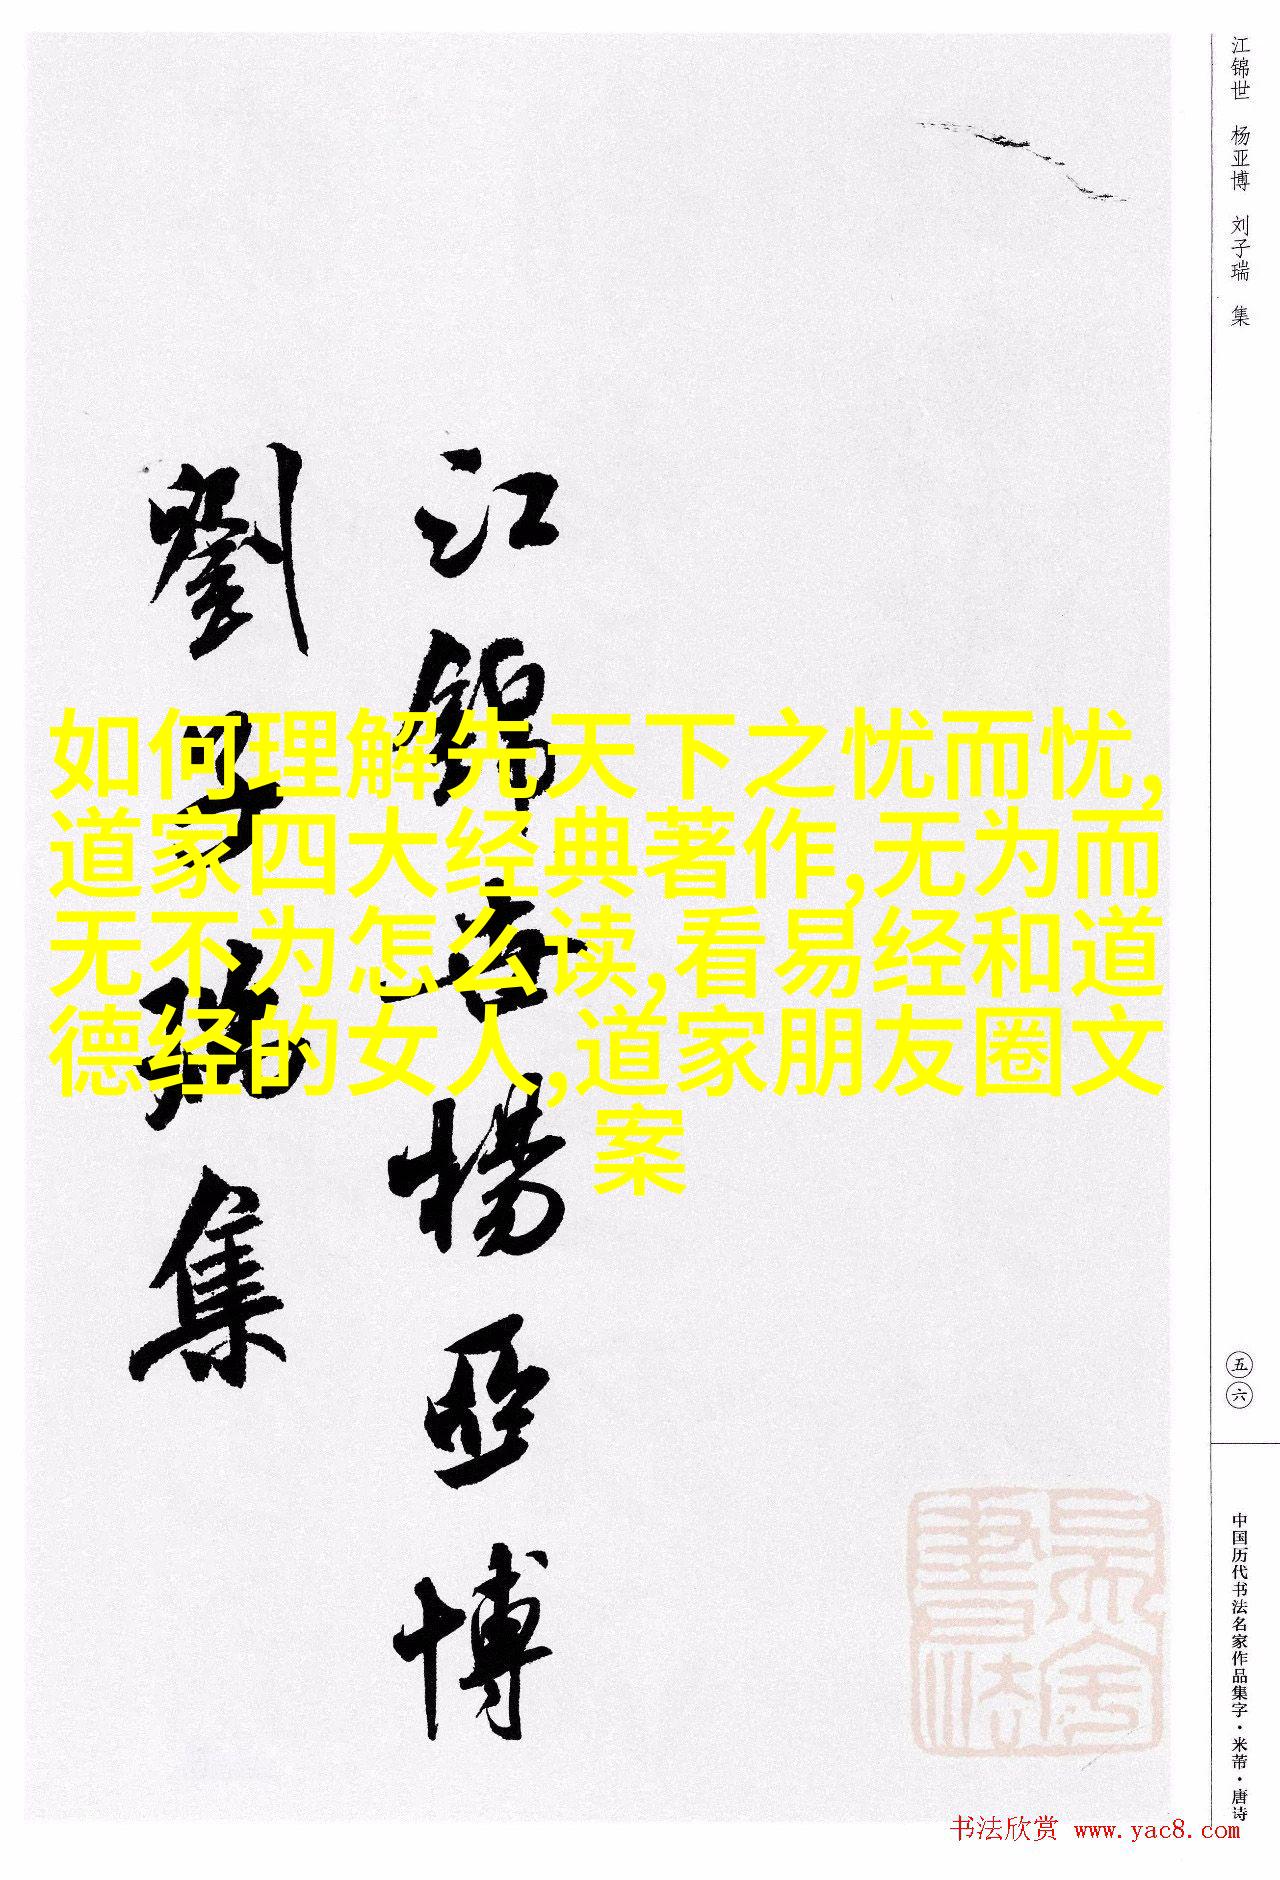 江锦世 杨亚博 刘子瑞 集
江錦世楊亞博
劉子瑞集
如何理解先天下之忧而忧,
道家四大经典著作,无为而
无不为怎么读,看易经和道
德经的女人,道家朋友圈文
案
五六
中国历代书法名家作品集字·米芾·唐诗
书法欣赏 www.yac8.com